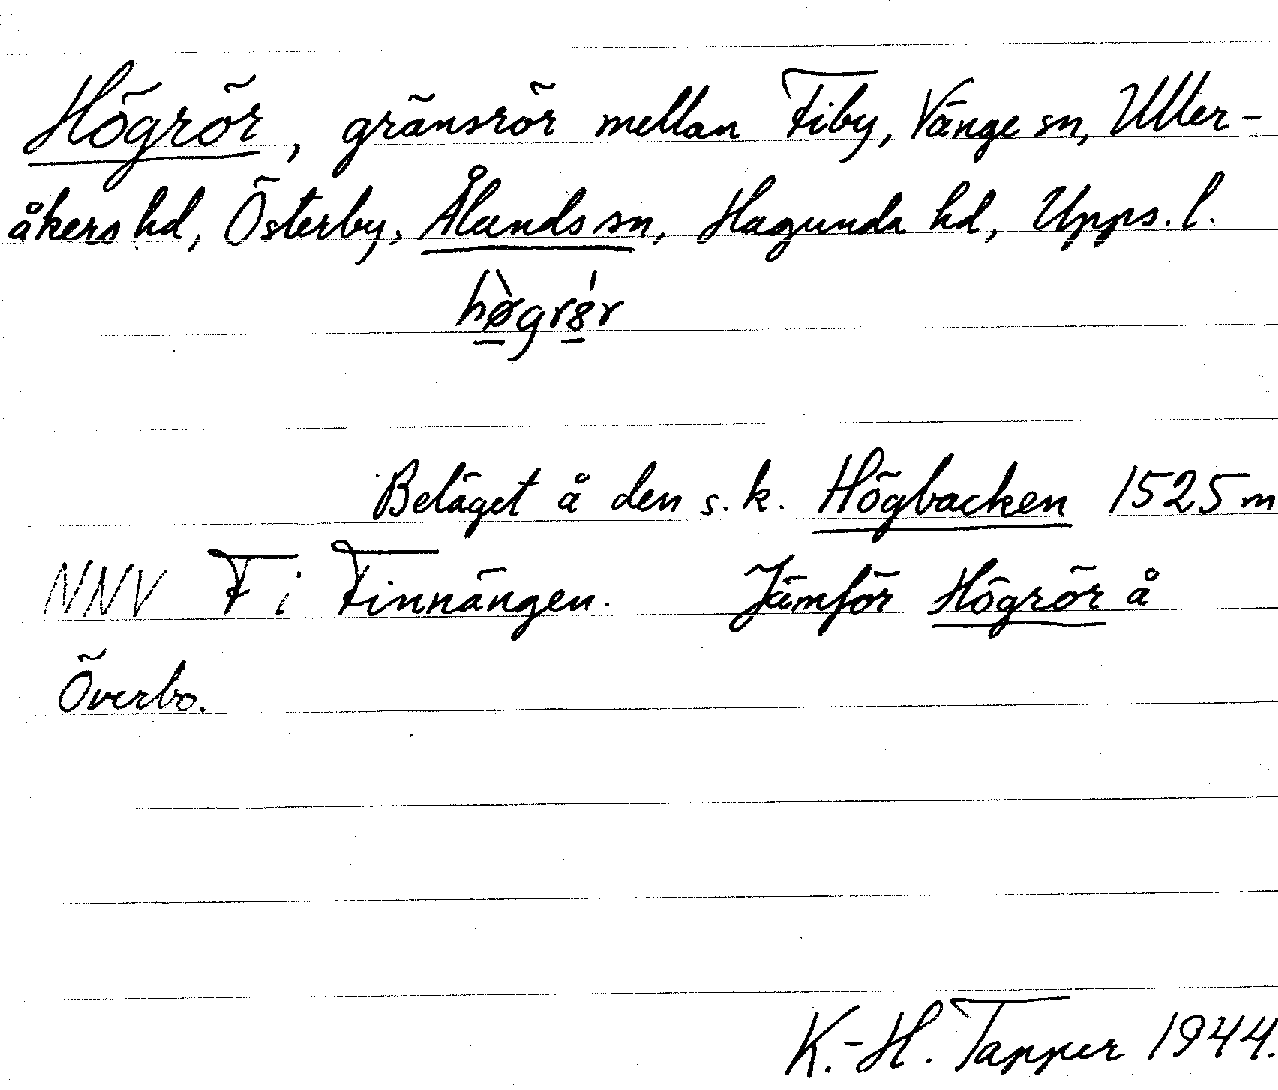 Högrör, gränsrör mellan Fiby, Vänge sn, Uller-
åkers hd, Österby, Ålands sn, Hagunda hd, Upps. l.
hø̀grø̀r
Beläget å den s. k. Högbacken 1525 m
NNV F i Finnängen. Jämför Högrör å
Överbo.
K.-H. Tapper 1944.